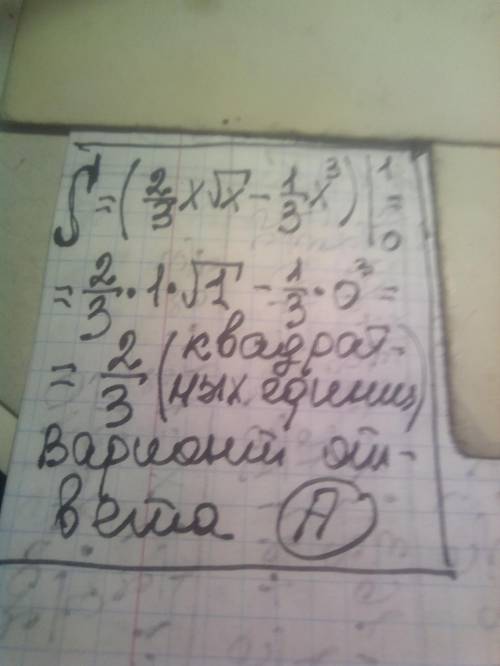 S = (2/3 x√x - 1/3 x³) |₀¹ =
= 2/3 · 1 · √1 - 1/3 · 0³ =
= 2/3 (квадрат-
ных единиц)
Вариант от-
вета А